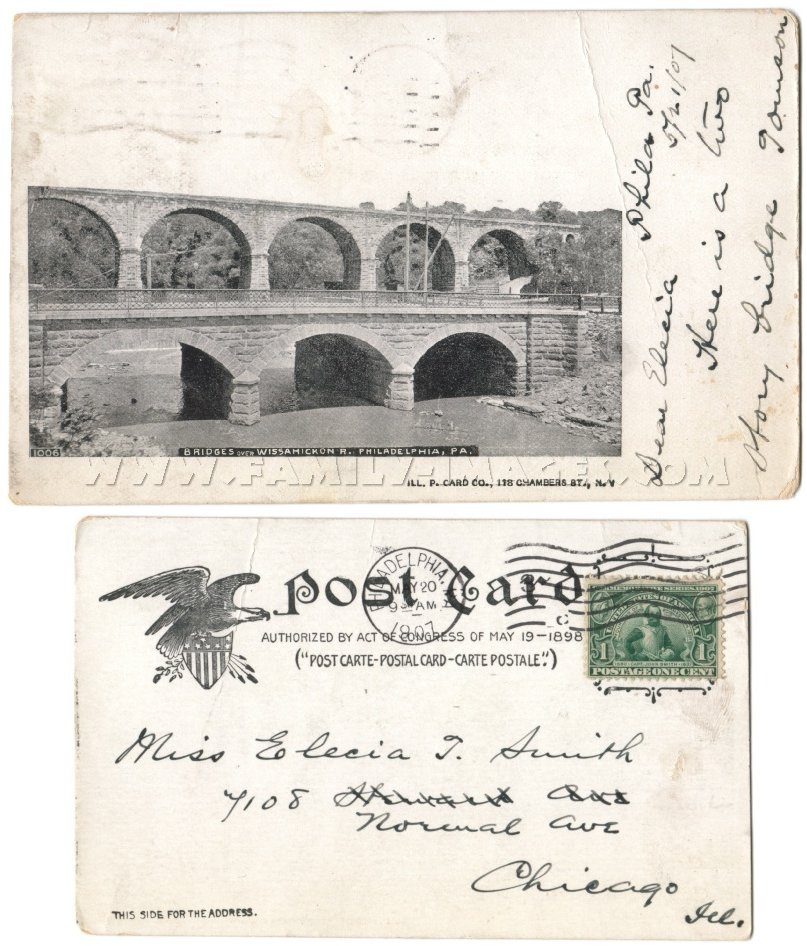 Dear Elecia Phila Pa.
5/21/07
Here is a two
Story bridge Tomson
1006
BRIDGES OVER WISSAHICKON R. PHILADELPHIA, PA.
WWW.FAMILY-IMAGES.COM
ILL. P. CARD CO., 118 CHAMBERS ST., N.Y
Post Card
AUTHORIZED BY ACT OF CONGRESS OF MAY 19-1898
("POST CARTE-POSTAL CARD-CARTE POSTALE".)
PHILADELPHIA, PA
MAY 20
9 AM
1907
COMMEMORATIVE SERIES, 1907
UNITED STATES OF AMERICA
1 1
1580 CAPT. JOHN SMITH 1631
POSTAGE ONE CENT
Miss Elecia T. Smith
7108
Normal Ave
Chicago
Ill.
THIS SIDE FOR THE ADDRESS.